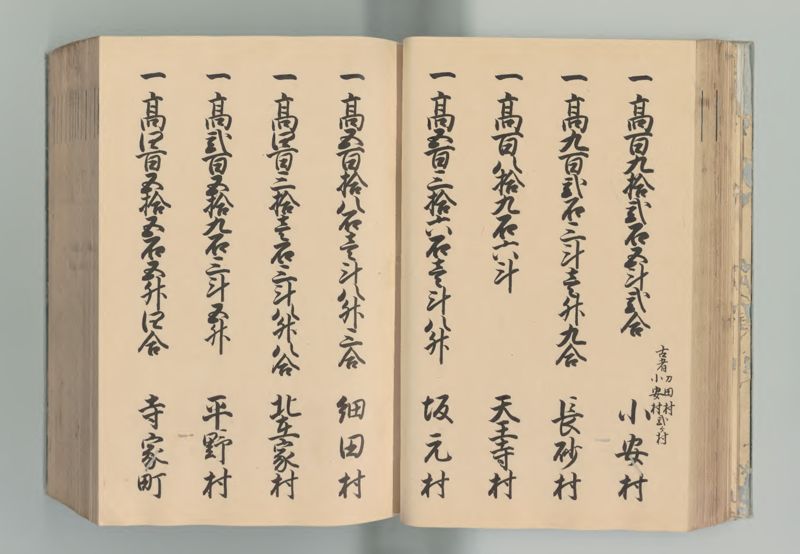 一 高百九拾弐石五斗弐合
古者 刀田村 小安村 弐ケ村
小安村
一 高九百弐石三斗壱升九合 長砂村
一 高百八拾九石六斗 天王寺村
一 高五百三拾六石壱斗八升 坂元村
一 高五百拾八石壱斗八升二合 細田村
一 高四百三拾壱石三斗八升八合 北在家村
一 高弐百五拾九石三斗五升 平野村
一 高四百五拾五石五升四合 寺家町